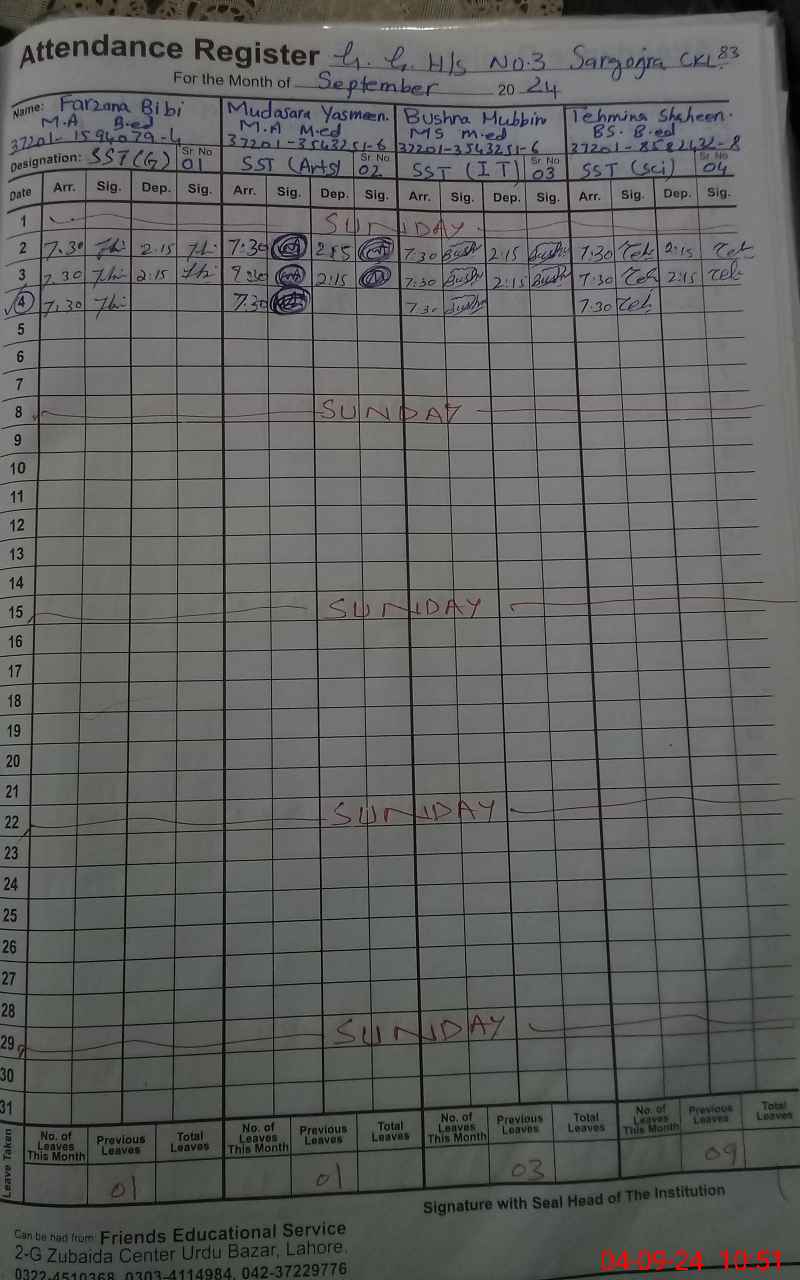 Attendance Register G. G. H/S No.3 Sargojra CKL. 83
For the Month of September 2024
Name: Farzana Bibi Mudasara Yasmeen. Bushra Mubbin Tehmina Shaheen.
M.A B.ed M.A M.ed MS M.ed BS. B.ed
37201-1594079-4 37201-3543251-6 37201-3543251-6 37201-8582432-8
Designation: SST(G) Sr. No 01 SST (Arts) Sr. No 02 SST (IT) Sr. No 03 SST (Sci) Sr. No 04
Date Arr. Sig. Dep. Sig. Arr. Sig. Dep. Sig. Arr. Sig. Dep. Sig. Arr. Sig. Dep. Sig.
1 SUNDAY
2 7.30 2:15 7:30 7.30 Bush 2:15 Bush 7:30 Teh 2:15 Teh
3 7.30 2:15 7:30 2:15 7:30 Bush 2:15 Bush 7:30 Teh 2:15 Teh
4 7.30 7.30 7.30 Bush 7.30 Teh
5
6
7
8 SUNDAY
9
10
11
12
13
14
15 SUNDAY
16
17
18
19
20
21
22 SUNDAY
23
24
25
26
27
28
29 SUNDAY
30
31
Leave Taken No. of Leaves This Month Previous Leaves Total Leaves No. of Leaves This Month Previous Leaves Total Leaves No. of Leaves This Month Previous Leaves Total Leaves No. of Leaves This Month Previous Leaves Total Leaves
01 01 03 09
Signature with Seal Head of The Institution
Can be had from: Friends Educational Service
2-G Zubaida Center Urdu Bazar, Lahore.
0322-4510368, 0303-4114984, 042-37229776
04-09-24 10:51